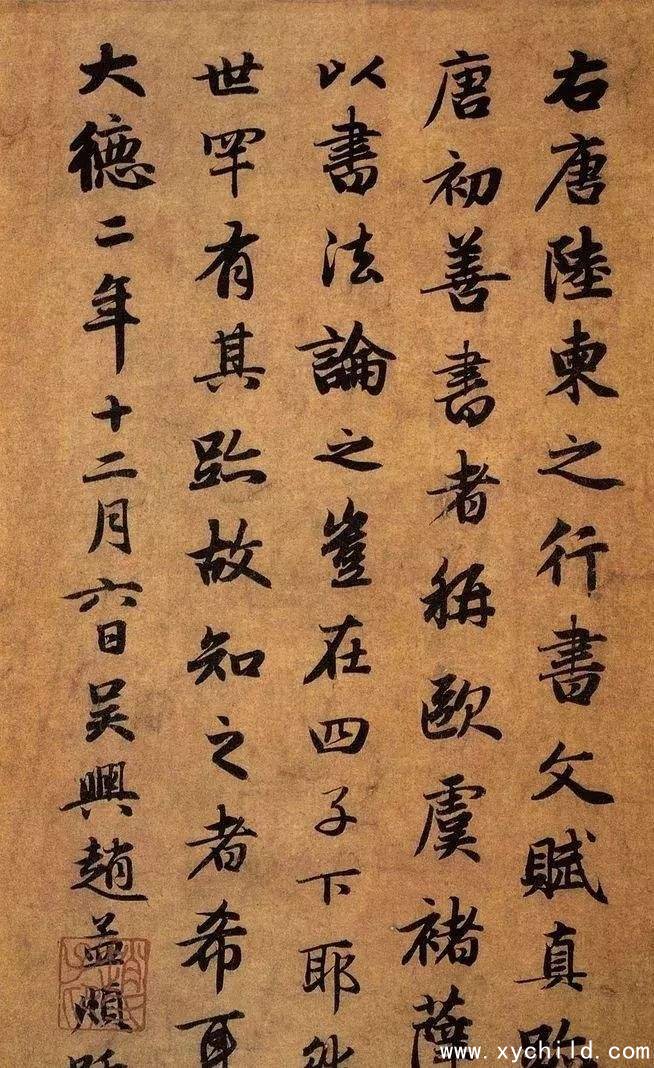 右唐陸柬之行書文賦真跡
唐初善書者稱歐虞褚薛
以書法論之豈在四子下耶然
世罕有其跡故知之者希耳
大德二年十二月六日吴興趙孟頫跋
www.xychild.com